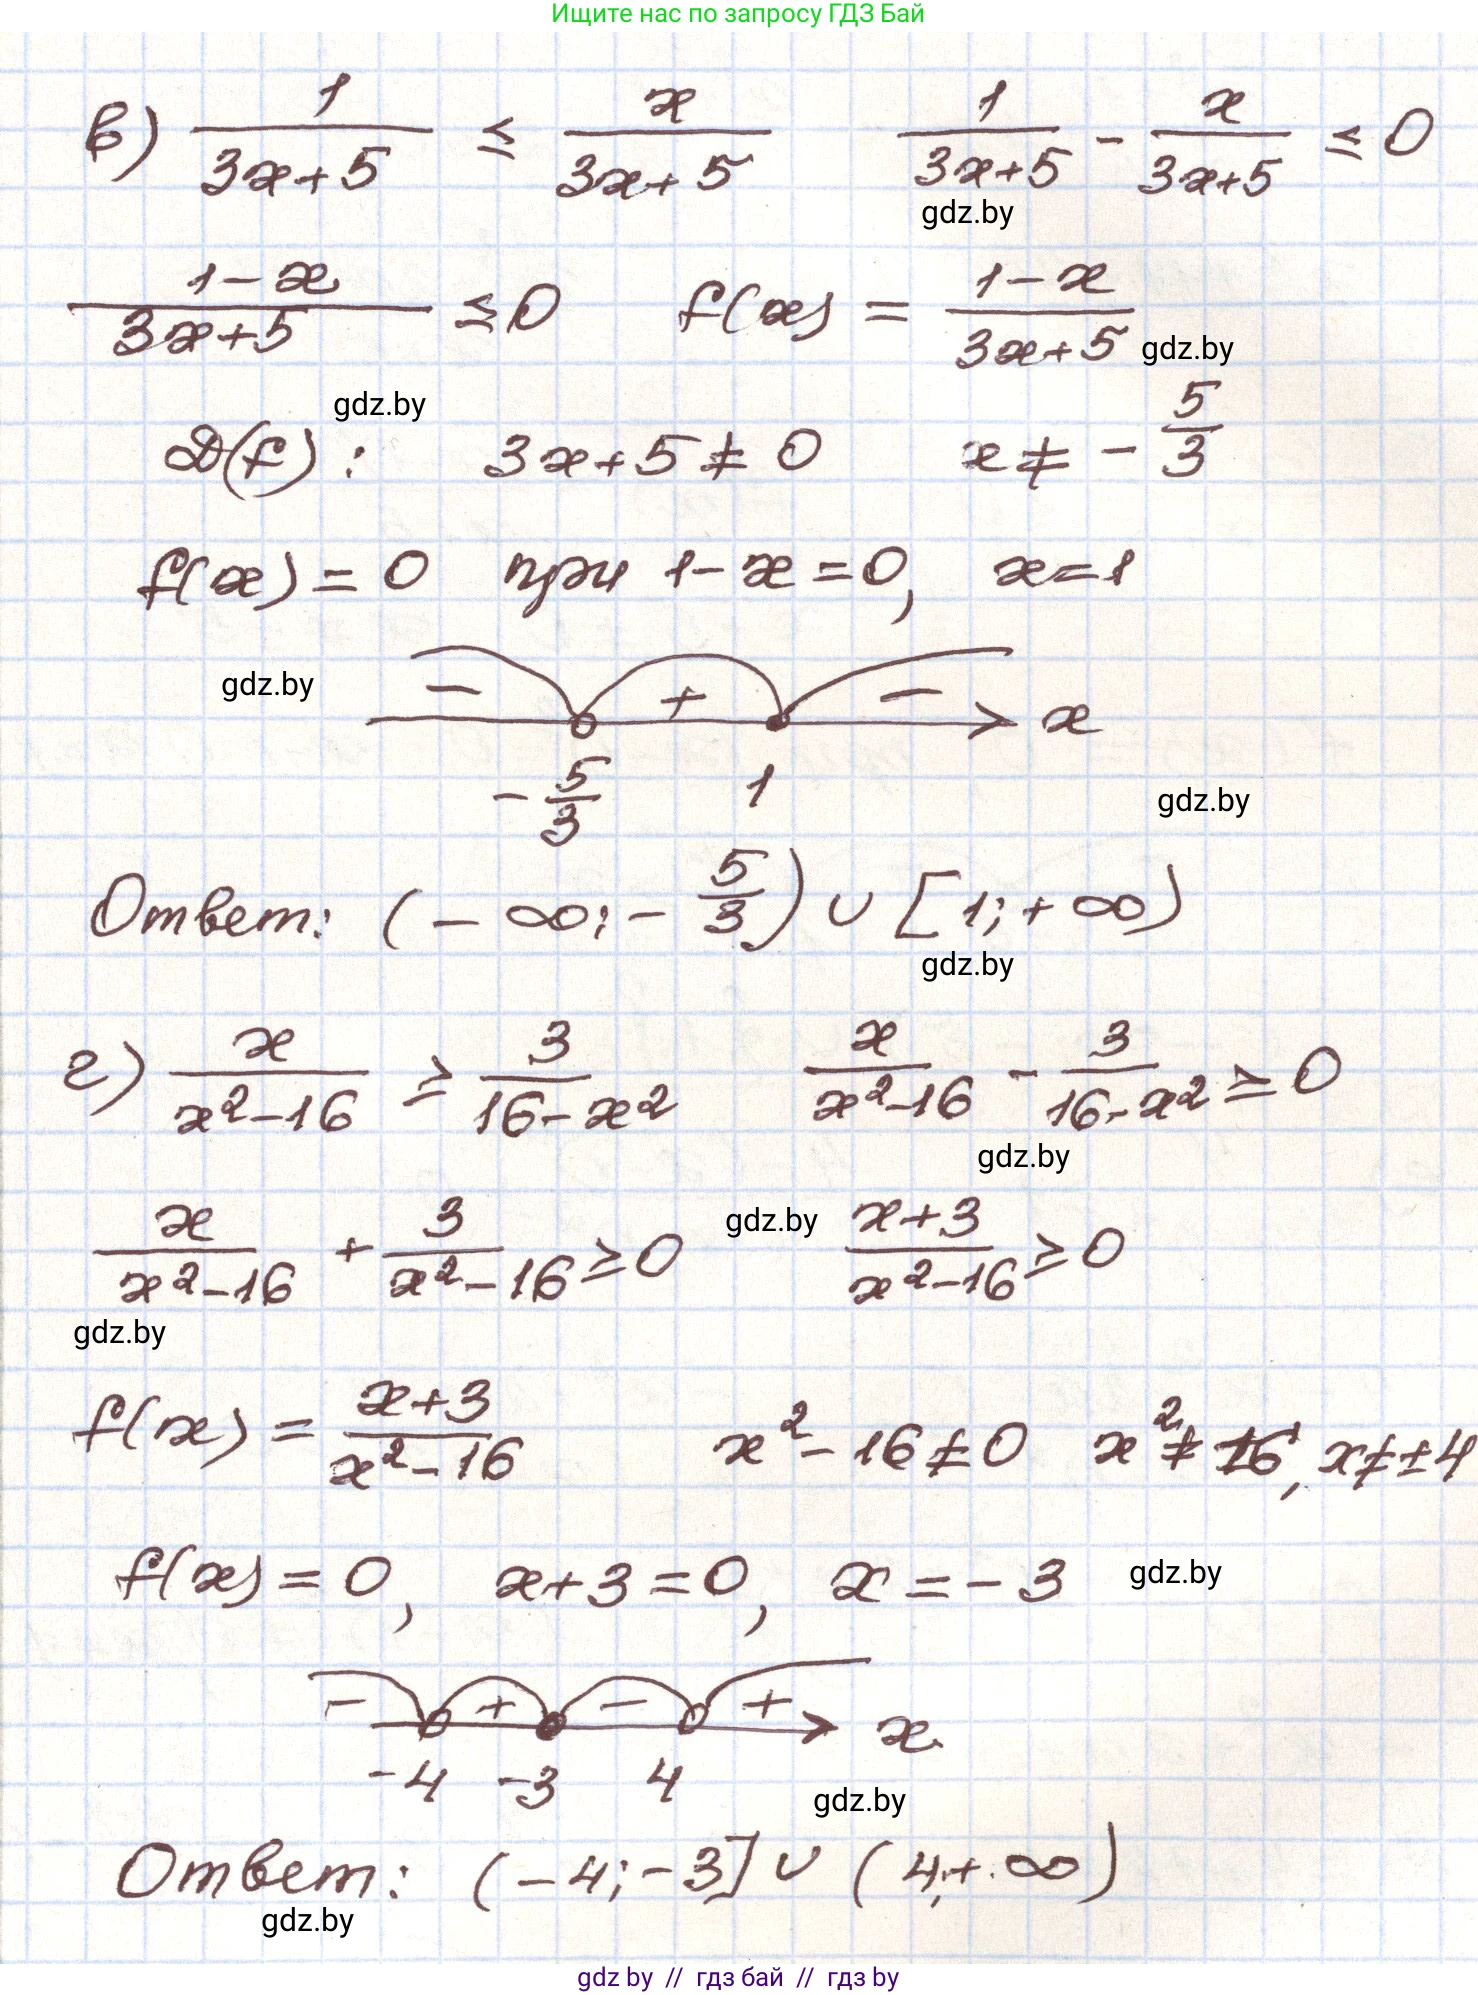 Ищите нас по запросу ГДЗ Бай
в) 1/(3x+5) ≤ x/(3x+5)   1/(3x+5) - x/(3x+5) ≤ 0
gdz.by
(1-x)/(3x+5) ≤ 0   f(x) = (1-x)/(3x+5)
gdz.by
gdz.by
D(f):   3x+5 ≠ 0   x ≠ -5/3
f(x) = 0 при 1-x=0,   x=1
gdz.by
- + - x
-5/3   1
gdz.by
Ответ: (-∞; -5/3) ∪ [1; +∞)
gdz.by
г) x/(x²-16) ≥ 3/(16-x²)   x/(x²-16) - 3/(16-x²) ≥ 0
gdz.by
x/(x²-16) + 3/(x²-16) ≥ 0   gdz.by   (x+3)/(x²-16) ≥ 0
gdz.by
f(x) = (x+3)/(x²-16)   x²-16≠0   x²≠16, x≠±4
f(x) = 0,   x+3=0,   x = -3   gdz.by
- + - + x
-4   -3   4
gdz.by
Ответ: (-4; -3] ∪ (4; + ∞)
gdz.by
gdz by // гдз бай // гдз by